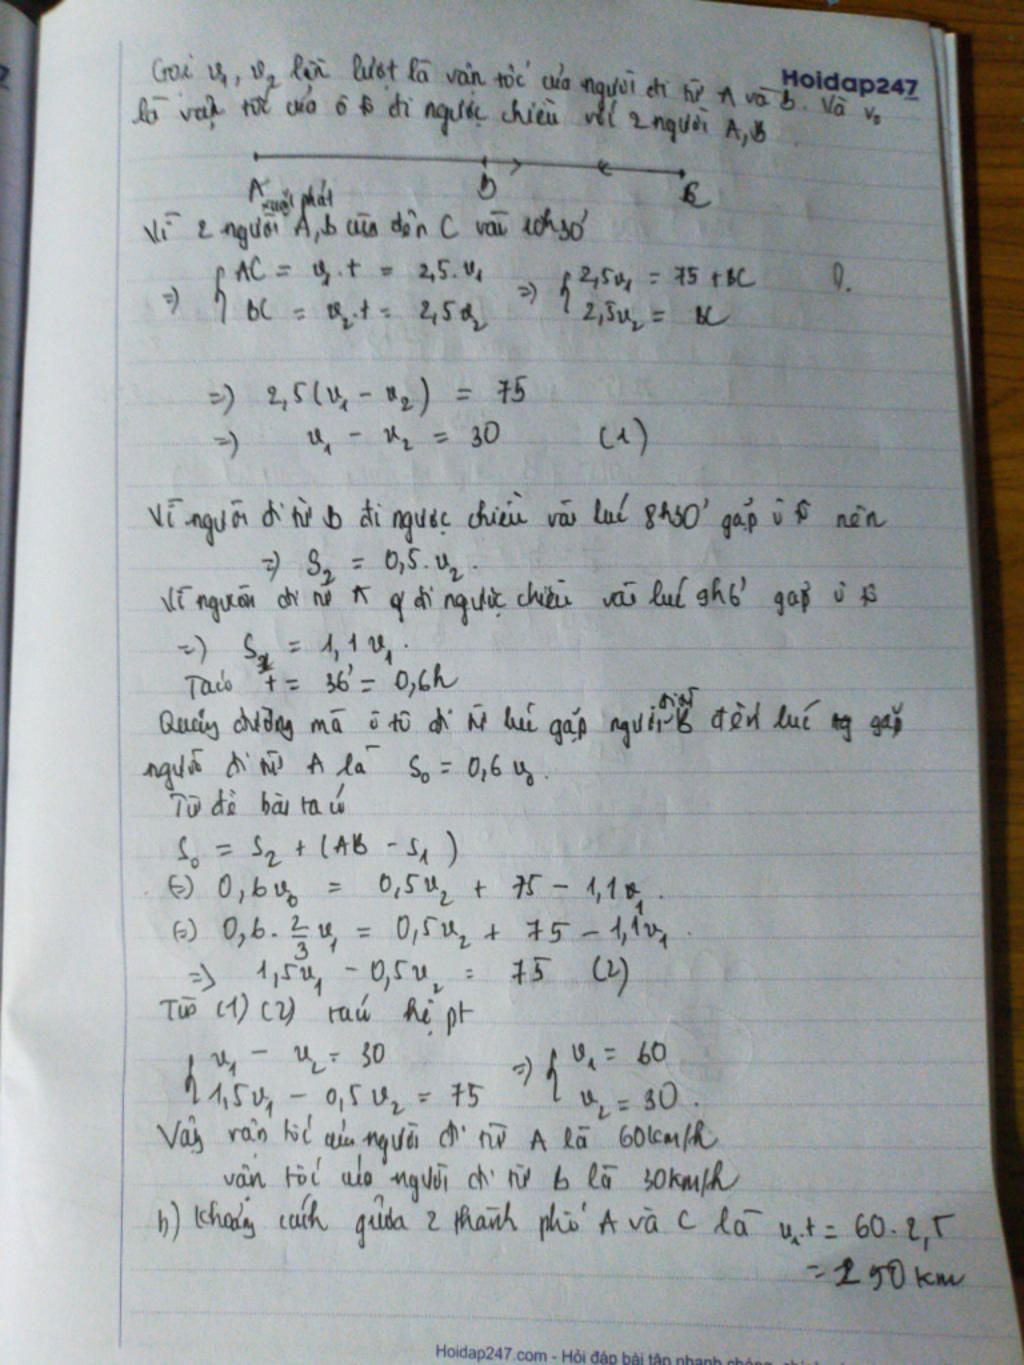 Hoidap247
Gọi v₁, v₂ lần lượt là vận tốc của người đi từ A và B. Và v₀
là vận tốc của ô tô đi ngược chiều với 2 người A, B
A B C
xuất phát
Vì 2 người A, B cùng đến C vào 10h30'
=> { AC = v₁.t = 2,5.v₁ => { 2,5v₁ = 75 + BC
BC = v₂.t = 2,5v₂ 2,5v₂ = BC
=> 2,5(v₁ - v₂) = 75
=> v₁ - v₂ = 30 (1)
Vì người đi từ B đi ngược chiều vào lúc 8h30' gặp ô tô nên
=> S₂ = 0,5.v₂.
Vì người đi từ A đi ngược chiều vào lúc 9h6' gặp ô tô
=> S₁ = 1,1v₁.
Ta có t = 36' = 0,6h
Quãng đường mà ô tô đi từ lúc gặp người đi từ B đến lúc gặp
người đi từ A là S₀ = 0,6v₀.
Từ đề bài ta có
S₀ = S₂ + (AB - S₁)
(=) 0,6v₀ = 0,5v₂ + 75 - 1,1v₁.
(=) 0,6.2/3v₁ = 0,5v₂ + 75 - 1,1v₁.
=> 1,5v₁ - 0,5v₂ = 75 (2)
Từ (1) (2) ta có hệ pt
{ v₁ - v₂ = 30 => { v₁ = 60
1,5v₁ - 0,5v₂ = 75 v₂ = 30.
Vậy vận tốc của người đi từ A là 60km/h
vận tốc của người đi từ B là 30km/h
b) Khoảng cách giữa 2 thành phố A và C là v₁.t = 60.2,5
= 150km
Hoidap247.com - Hỏi đáp bài tập nhanh chóng,